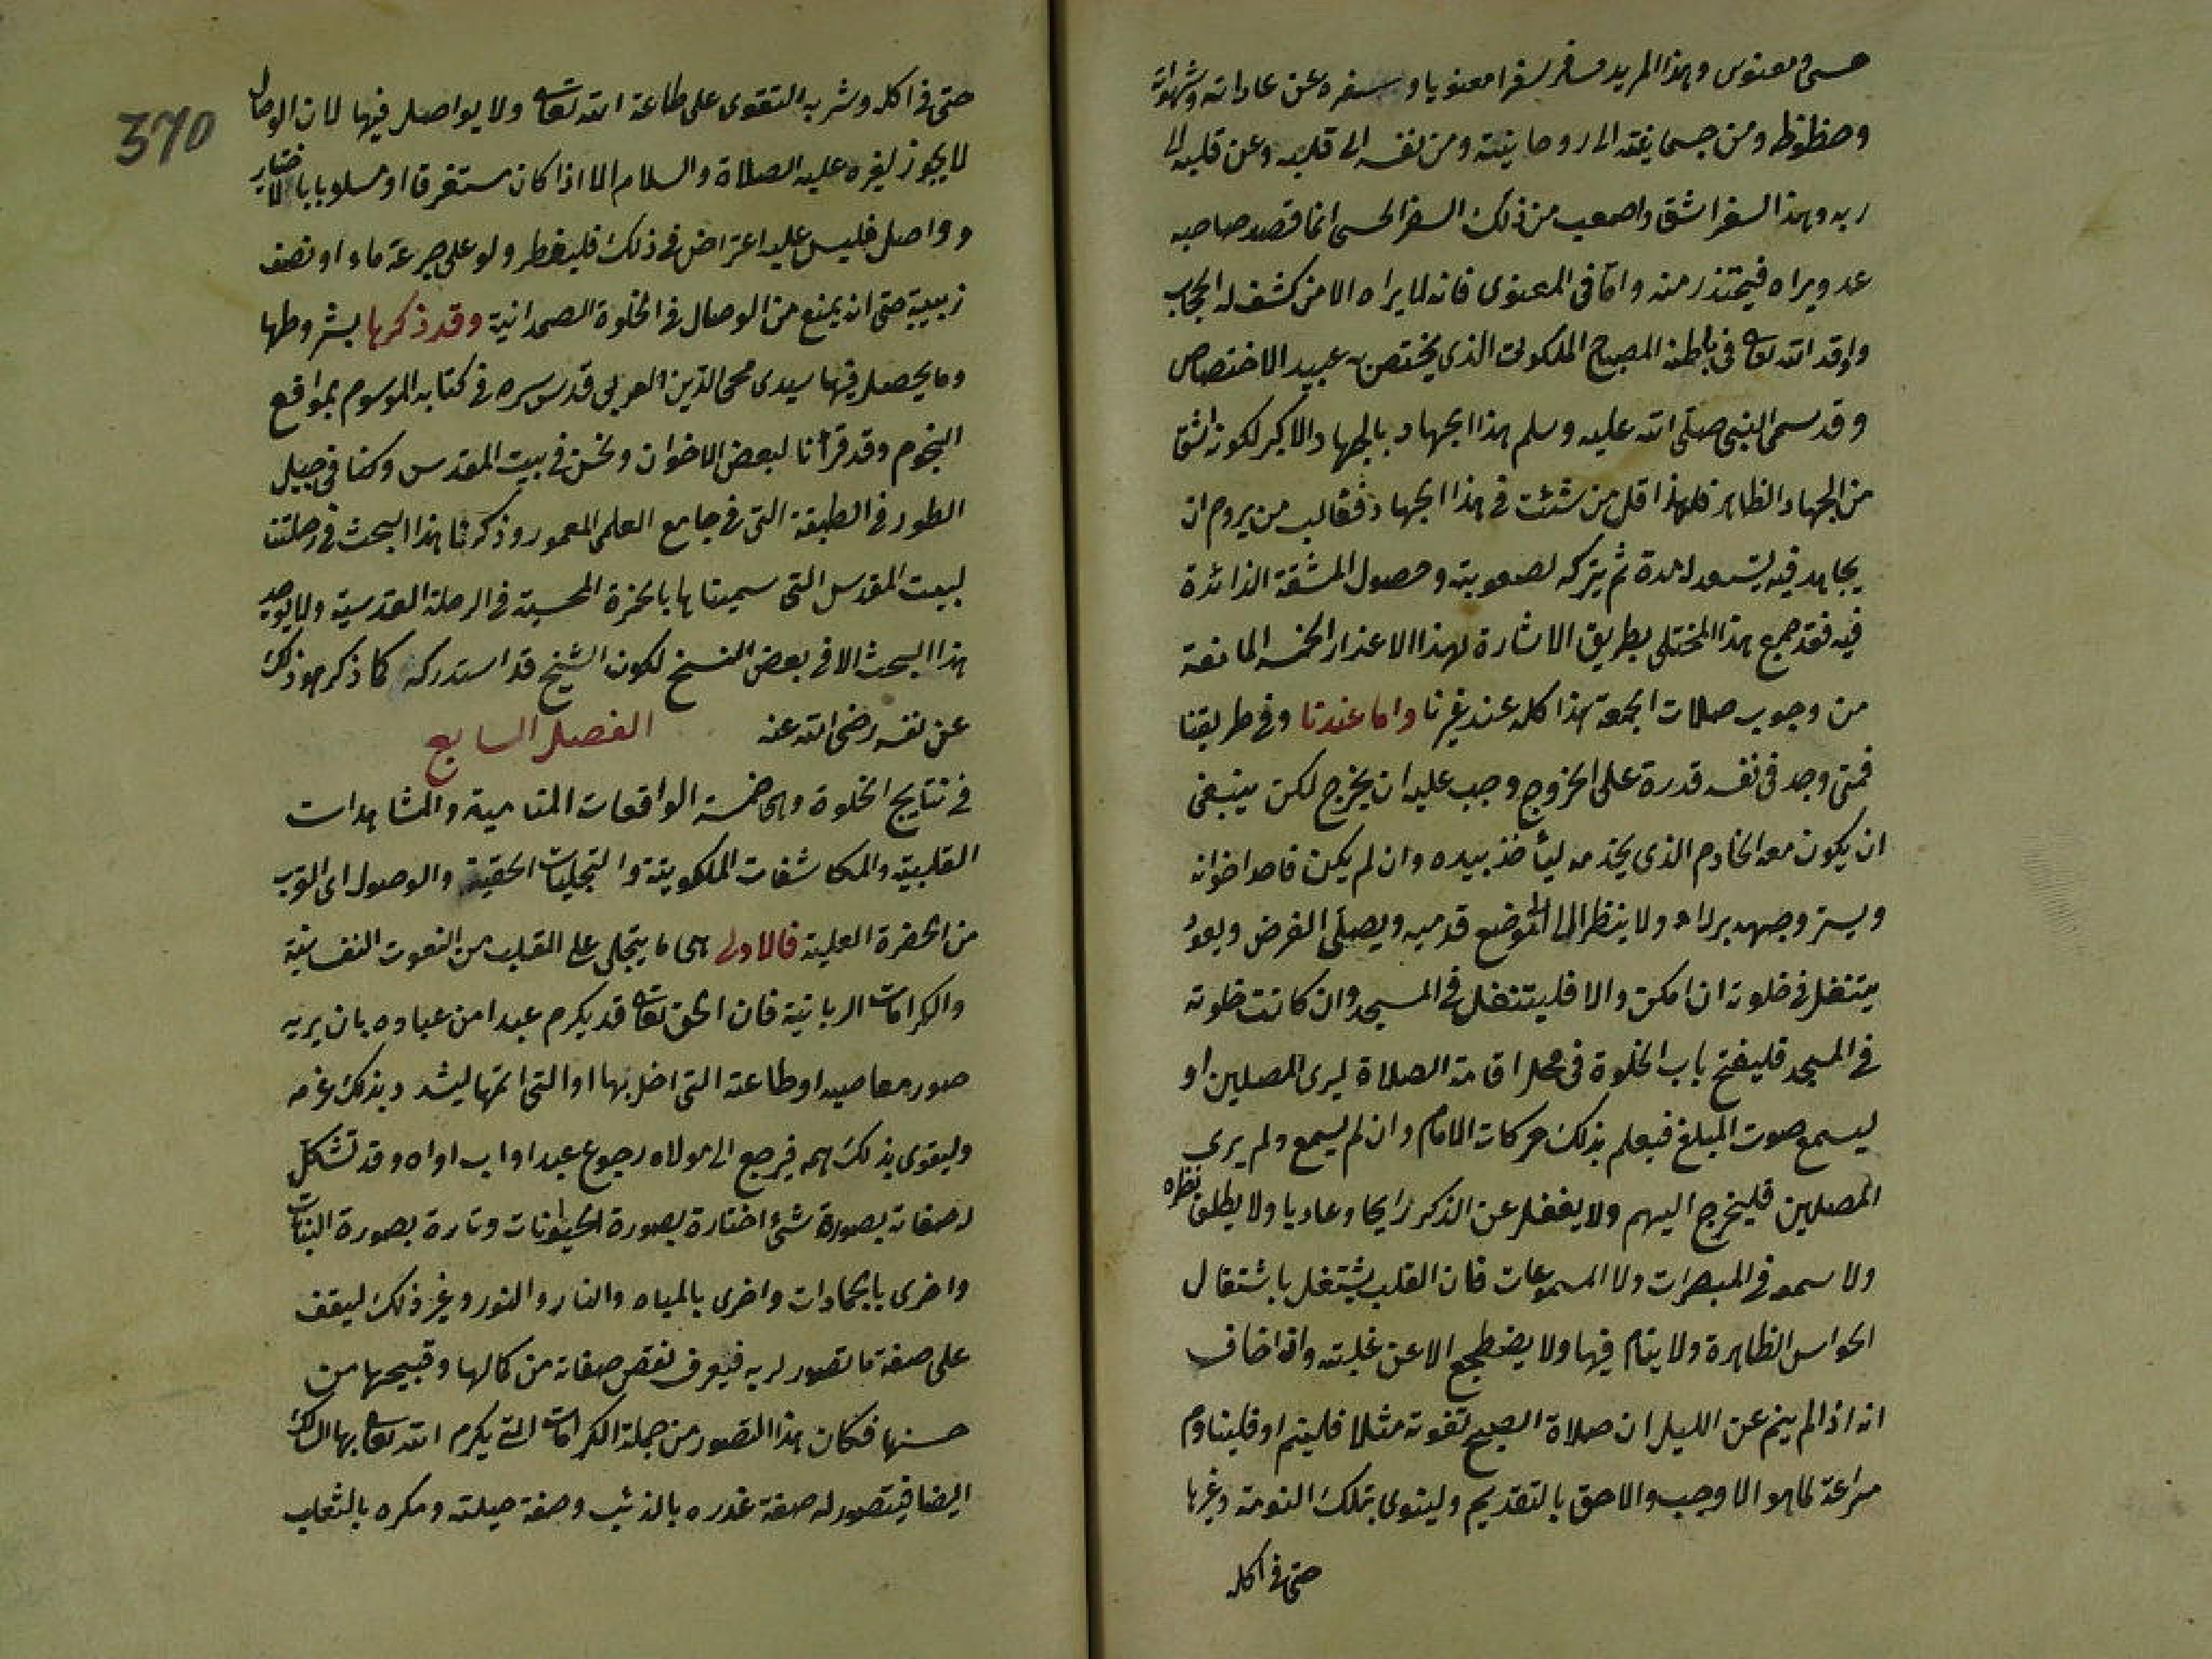 حسى ومعنوى وهذا المريد مسافر سفرا معنويا وسفره عن عاداته وشهواته
وحظوظه ومن جسمانيته الى روحانيته ومن نفسه الى قلبه وعن قلبه الى
ربه وهذا السفر اشق واصعب من ذلك السفر الحسى انما قصد صاحبه
عدو يراه فيحتذر منه واما فى المعنوى فانه لا يراه الا من كشف له الحجاب
واوقد الله تعالى فى باطنه المصباح الملكوتى الذى يختص به عبيد الاختصاص
وقد سمى النبى صلى الله عليه وسلم هذا الجهاد بالجهاد الاكبر لكونه اشق
من الجهاد الظاهر فلهذا قل من شئت فى هذا الجهاد فغالب من يروم ان
يجاهد فيه يستعد له مدة ثم يتركه لصعوبته وحصول المشقة الزائدة
فيه فقد جمع هذا المختلى بطريق الاشارة لهذا الاعذار الخمسه المانعة
من وجوب صلات الجمعة هذا كله عند غيرنا واما عندنا وفى طريقنا
فمتى وجد فى نفسه قدرة على الخروج وجب عليه ان يخرج لكن ينبغى
ان يكون معه الخادم الذى يخدمه ليأخذ بيده وان لم يكن فاحد اخوانه
ويستر وجهه برداء ولا ينظر الا الى موضع قدميه ويصلى الفرض ويعود
يتنفل فى خلوته ان امكن والا فليتنفل فى المسجد وان كانت خلوته
فى المسجد فليفتح باب الخلوة فى محل اقامة الصلاة ليرى المصلين او
ليسمع صوت المبلغ فيعلم بذلك حركات الامام وان لم يسمع ولم يرى
المصلين فليخرج اليهم ولا يغفل عن الذكر رايحا وغاديا ولا يطلق نظره
ولا سمعه فى المبصرات ولا المسموعات فان القلب يشتغل باشتغال
الحواس الظاهرة ولا ينام فيها ولا يضطجع الا عن غلبته وان خاف
انه اذا لم ينم عن الليل ان صلاة الصبح تفوته مثلا فلينم او فليتناوم
مراعة لما هو الاوجب والاحق بالتقديم ولينوى بتلك النومة وغيرها
حتى فى اكله
370
حتى فى اكله وشربه التقوى على طاعة الله تعالى ولا يواصل فيها لان الوصال
لا يجوز لغيره عليه الصلاة والسلام الا اذا كان مستغرقا او مسلوبا بالاختيار
وواصل فليس عليه اعتراض فى ذلك فليفطر ولو على جرعة ماء او نصف
زبيبة حتى انه يمنع من الوصال فى الخلوة الصمدانية وقد ذكرها بشروطها
وما يحصل فيها سيدى محى الدين العربى قدس سره فى كتابه الموسوم بمواقع
النجوم وقد قرأنا لبعض الاخوان ونحن فى بيت المقدس وكنا فى جبل
الطور فى الطبقة التى فى جامع العلمى المعمور وذكرنا هذا البحث فى رحلتنا
لبيت المقدس التى سميناها بالخمرة المحسية فى الرحلة القدسية ولا يوجد
هذا البحث الا فى بعض النسخ لكون الشيخ قد استدركه كما ذكر هو ذلك
عن نفسه رضى الله عنه الفصل السابع
فى نتايج الخلوة وهى خمسة الواقعات المنامية والمشاهدات
القلبية والمكاشفات الملكوتية والتجليات الحقية والوصول اى القرب
من الحضرة العلية فالاولى هى ما يتجلى على القلب من النعوت النفسانية
والكرامات الربانية فان الحق تعالى قد يكرم عبدا من عباده بان يريه
صور معاصيه او طاعته التى اخل بها او التى اتمها ليشد بذلك عزمه
وليقوى بذلك همه فيرجع الى مولاه رجوع عبد اواب اواه وقد تشكل
له صفاته بصورة شئ اختارة بصورة الحيوانات وتارة بصورة النباتات
واخرى بالجمادات واخرى بالمياه والنار والنور وغير ذلك ليقف
على صفة ما تصور لربه فيعرف نقص صفاته من كمالها وقبيحها من
حسنها فكان هذا التصور من جملة الكرامات التى يكرم الله تعالى بها السالك
ايضا فيتصور له صفة غدره بالذئب وصفة حيلته ومكره بالثعلب